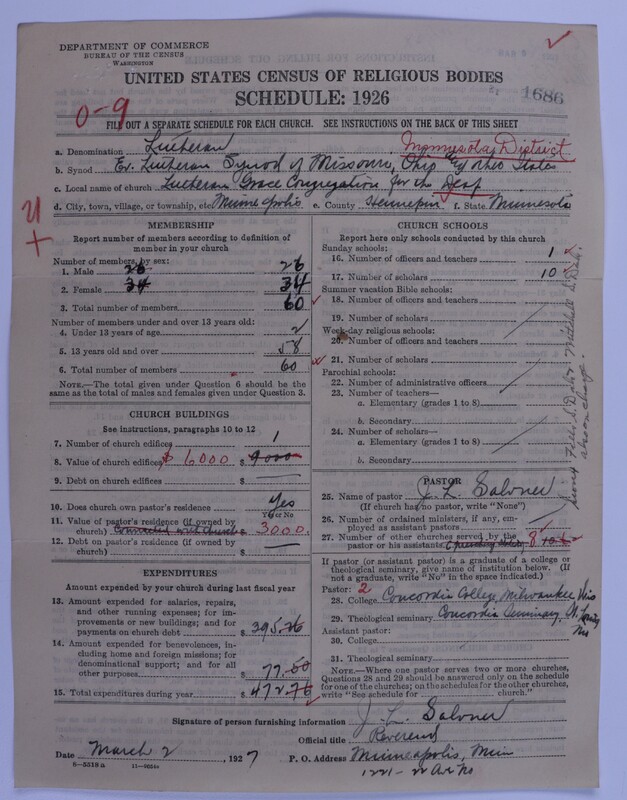 DEPARTMENT OF COMMERCE
BUREAU OF THE CENSUS
WASHINGTON
UNITED STATES CENSUS OF RELIGIOUS BODIES
SCHEDULE: 1926
1686
0-9
FILL OUT A SEPARATE SCHEDULE FOR EACH CHURCH. SEE INSTRUCTIONS ON THE BACK OF THIS SHEET
a. Denomination Lutheran
b. Synod Ev. Lutheran Synod of Missouri, Ohio and other States
c. Local name of church Lutheran Grace Congregation for the Deaf
d. City, town, village, or township, etc. Minneapolis e. County Hennepin f. State Minnesota
MEMBERSHIP
Report number of members according to definition of member in your church
Number of members, by sex:
1. Male 26 26
2. Female 34 34
3. Total number of members 60
Number of members under and over 13 years old:
4. Under 13 years of age 2
5. 13 years old and over 58
6. Total number of members 60
NOTE.—The total given under Question 6 should be the same as the total of males and females given under Question 3.
CHURCH BUILDINGS
See instructions, paragraphs 10 to 12
7. Number of church edifices 1
8. Value of church edifices $6000 $ 9000
9. Debt on church edifices $
10. Does church own pastor's residence? Yes
Yes or No
11. Value of pastor's residence (if owned by church) Connected with church $ 3000.
12. Debt on pastor's residence (if owned by church) $
EXPENDITURES
Amount expended by your church during last fiscal year
13. Amount expended for salaries, repairs, and other running expenses; for improvements or new buildings; and for payments on church debt $ 395.26
14. Amount expended for benevolences, including home and foreign missions; for denominational support; and for all other purposes $ 77.50
15. Total expenditures during year $ 472.76
CHURCH SCHOOLS
Report here only schools conducted by this church
Sunday schools:
16. Number of officers and teachers 1
17. Number of scholars 10
Summer vacation Bible schools:
18. Number of officers and teachers
19. Number of scholars
Week-day religious schools:
20. Number of officers and teachers
21. Number of scholars
Parochial schools:
22. Number of administrative officers
23. Number of teachers—
a. Elementary (grades 1 to 8)
b. Secondary
24. Number of scholars—
a. Elementary (grades 1 to 8)
b. Secondary
PASTOR
25. Name of pastor J. L. Salvner
(If church has no pastor, write "None")
26. Number of ordained ministers, if any, employed as assistant pastors
27. Number of other churches served by the pastor or his assistants 8
If pastor (or assistant pastor) is a graduate of a college or theological seminary, give name of institution below. (If not a graduate, write "No" in the space indicated.)
Pastor: 2
28. College Concordia College, Milwaukee, Wis
29. Theological seminary Concordia Seminary, St. Louis, Mo
Assistant pastor:
30. College
31. Theological seminary
NOTE.—Where one pastor serves two or more churches, Questions 28 and 29 should be answered only on the schedule for one of the churches; on the schedules for the other churches, write "See schedule for ........ church."
Signature of person furnishing information J. L. Salvner
Official title Reverend
Date March 2, 1927 P. O. Address Minneapolis, Minn
1221- 22 Av. No
8-5518a